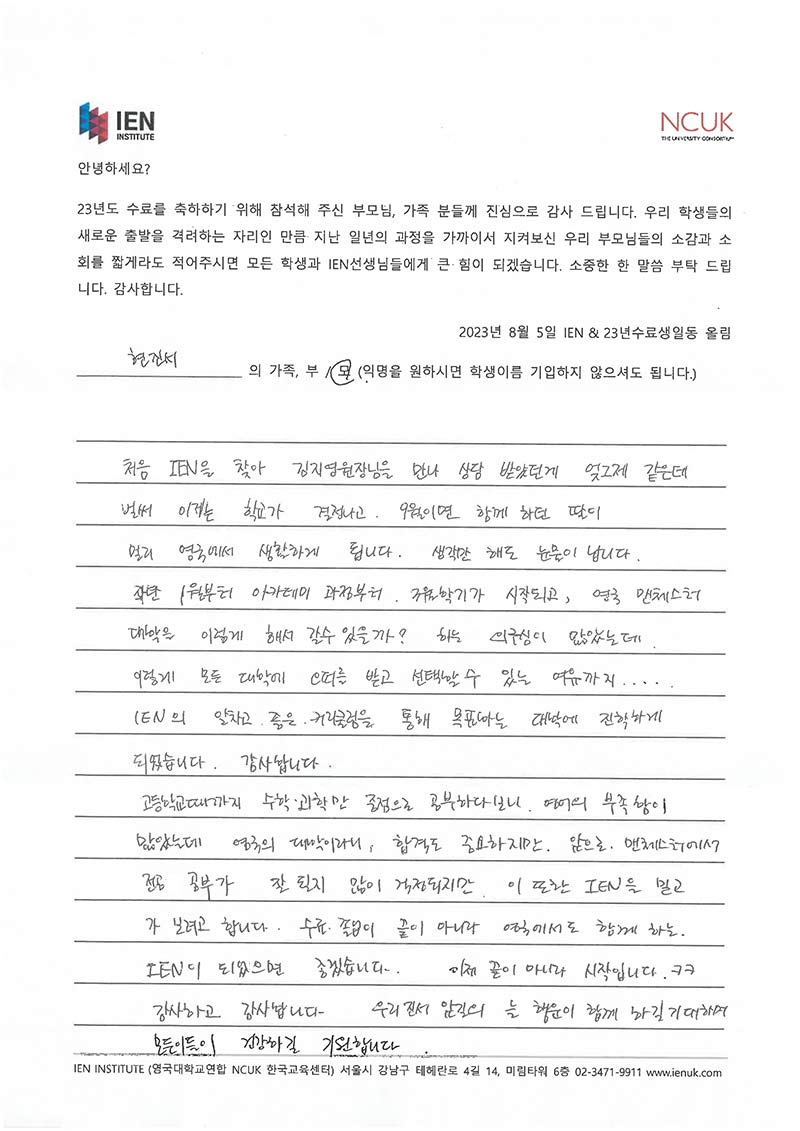 IEN
INSTITUTE
NCUK
THE UNIVERSITY CONSORTIUM
안녕하세요?
23년도 수료를 축하하기 위해 참석해 주신 부모님, 가족 분들께 진심으로 감사 드립니다. 우리 학생들의
새로운 출발을 격려하는 자리인 만큼 지난 일년의 과정을 가까이서 지켜보신 우리 부모님들의 소감과 소
회를 짧게라도 적어주시면 모든 학생과 IEN선생님들에게 큰 힘이 되겠습니다. 소중한 한 말씀 부탁 드립
니다. 감사합니다.
2023년 8월 5일 IEN & 23년수료생일동 올림
현진서 의 가족, 부 / 모 (익명을 원하시면 학생이름 기입하지 않으셔도 됩니다.)
처음 IEN을 찾아 김지영원장님을 만나 상담 받았던게 엊그제 같은데
벌써 이제는 학교가 결정나고. 9월이면 함께 하던 딸이
멀리 영국에서 생활하게 됩니다. 생각만 해도 눈물이 납니다.
작년 1월부터 아카데미 과정부터. 정규학기가 시작되고, 영국 맨체스터
대학을 이렇게 해서 갈수 있을까? 하는 의구심이 많았는데.
이렇게 모든 대학에 오퍼를 받고 선택할 수 있는 여유까지.....
IEN의 알차고 좋은 커리큘럼을 통해 목표하는 대학에 진학하게
되었습니다. 감사합니다.
고등학교때까지 수학·과학만 중점으로 공부하다보니. 영어의 부족함이
많았는데 영국의 대학이라니, 합격도 중요하지만. 앞으로. 맨체스터에서
전공 공부가 잘 될지 많이 걱정되지만 이 또한 IEN을 믿고
가 보려고 합니다. 수료·졸업이 끝이 아니라 영국에서도 함께 하는.
IEN이 되었으면 좋겠습니다. 이제 끝이 아니라 시작입니다.ㅋㅋ
감사하고 감사합니다- 우리 진서 앞길의 늘 행운이 함께 하길 기대하며
모든이들이 건강하길 기원합니다.
IEN INSTITUTE (영국대학교연합 NCUK 한국교육센터) 서울시 강남구 테헤란로 4길 14, 미림타워 6층 02-3471-9911 www.ienuk.com